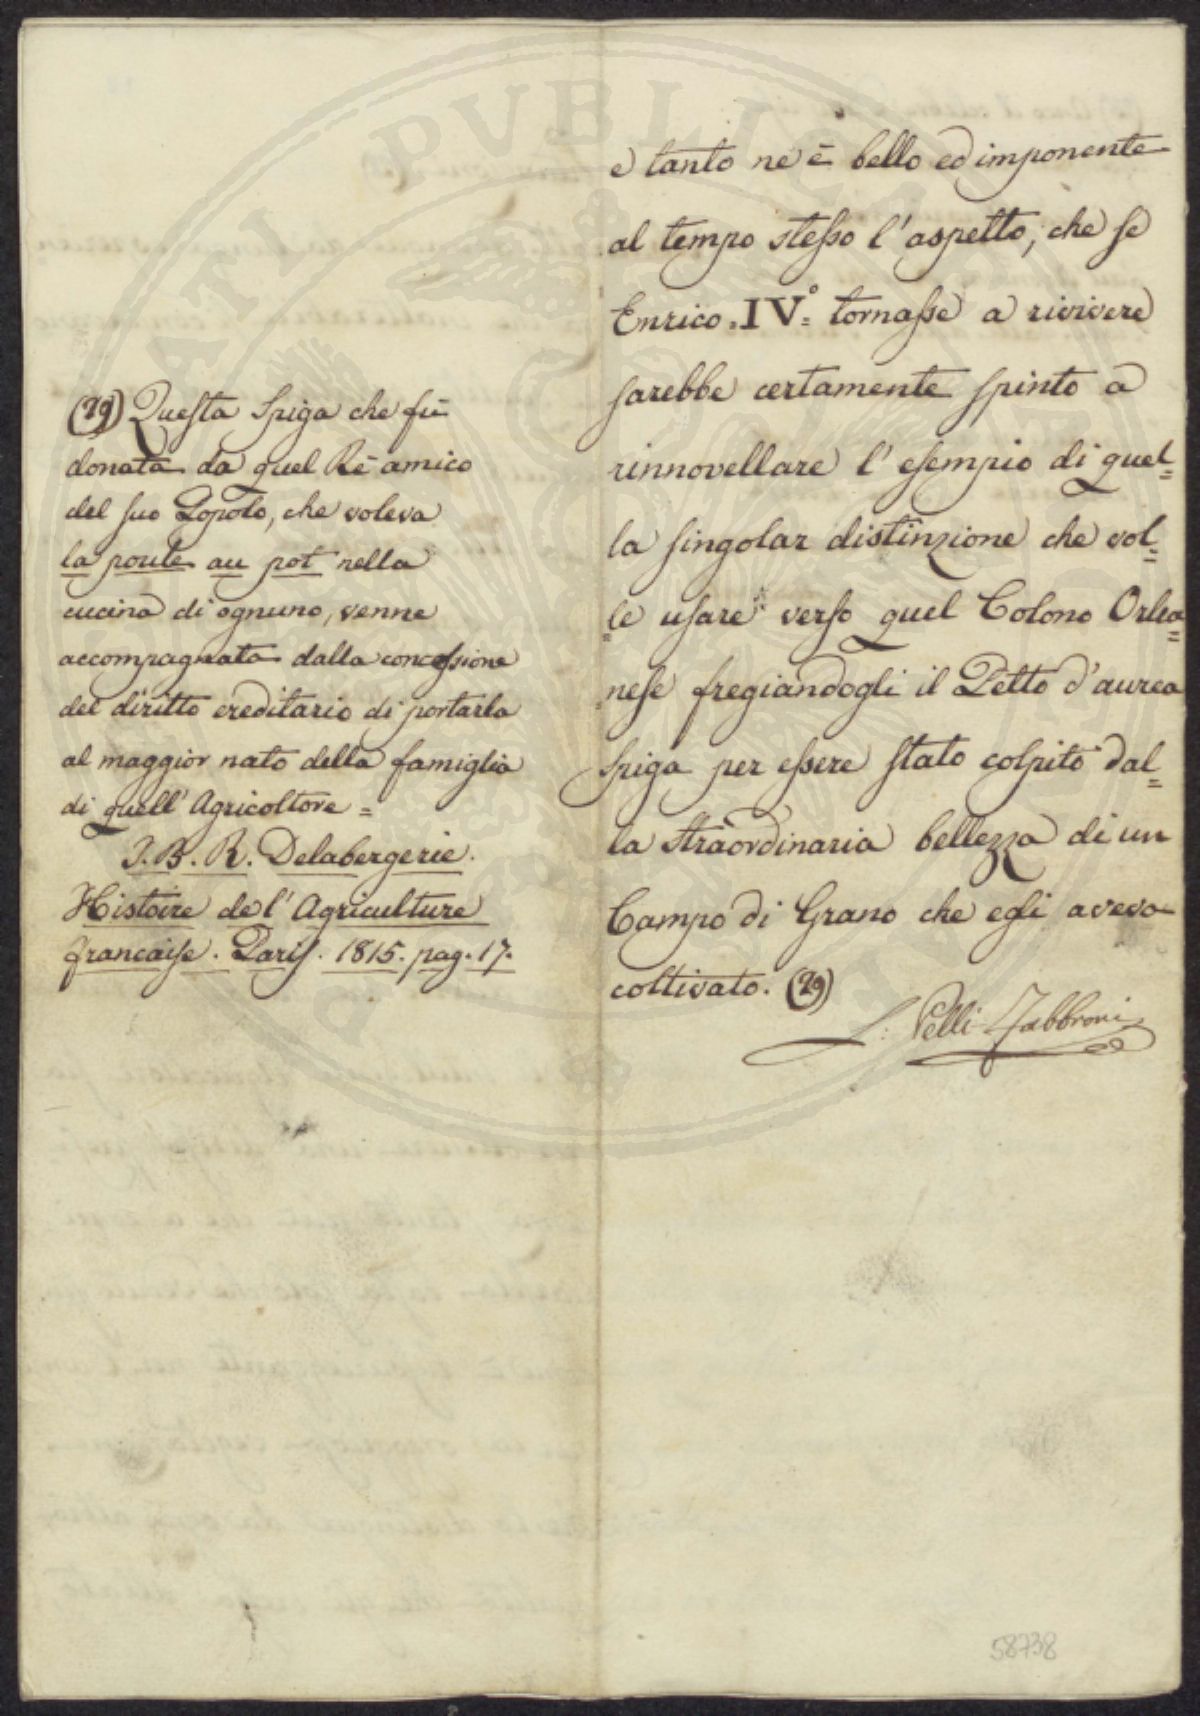 e tanto ne è bello ed imponente
al tempo stesso l'aspetto, che se
Enrico IV.° tornasse a rivivere
sarebbe certamente spinto a
rinnovellare l'esempio di quel=
la singolar distinzione che vol=
le usare verso quel Colono Orlea=
nese fregiandogli il Petto d'aurea
Spiga per essere stato colpito dal=
la straordinaria bellezza di un
Campo di Grano che egli aveva
coltivato. (29)
L: Pelli Fabbroni
(29) Questa Spiga che fù
donata da quel Rè amico
del suo Popolo, che voleva
la poule au pot nella
cucina di ognuno, venne
accompagnata dalla concessione
del diritto ereditario di portarla
al maggior nato della famiglia
di quell'Agricoltore =
J. B. R. Delabergerie.
Histoire de l'Agriculture
francaise. Paris. 1815. pag. 17.
58738